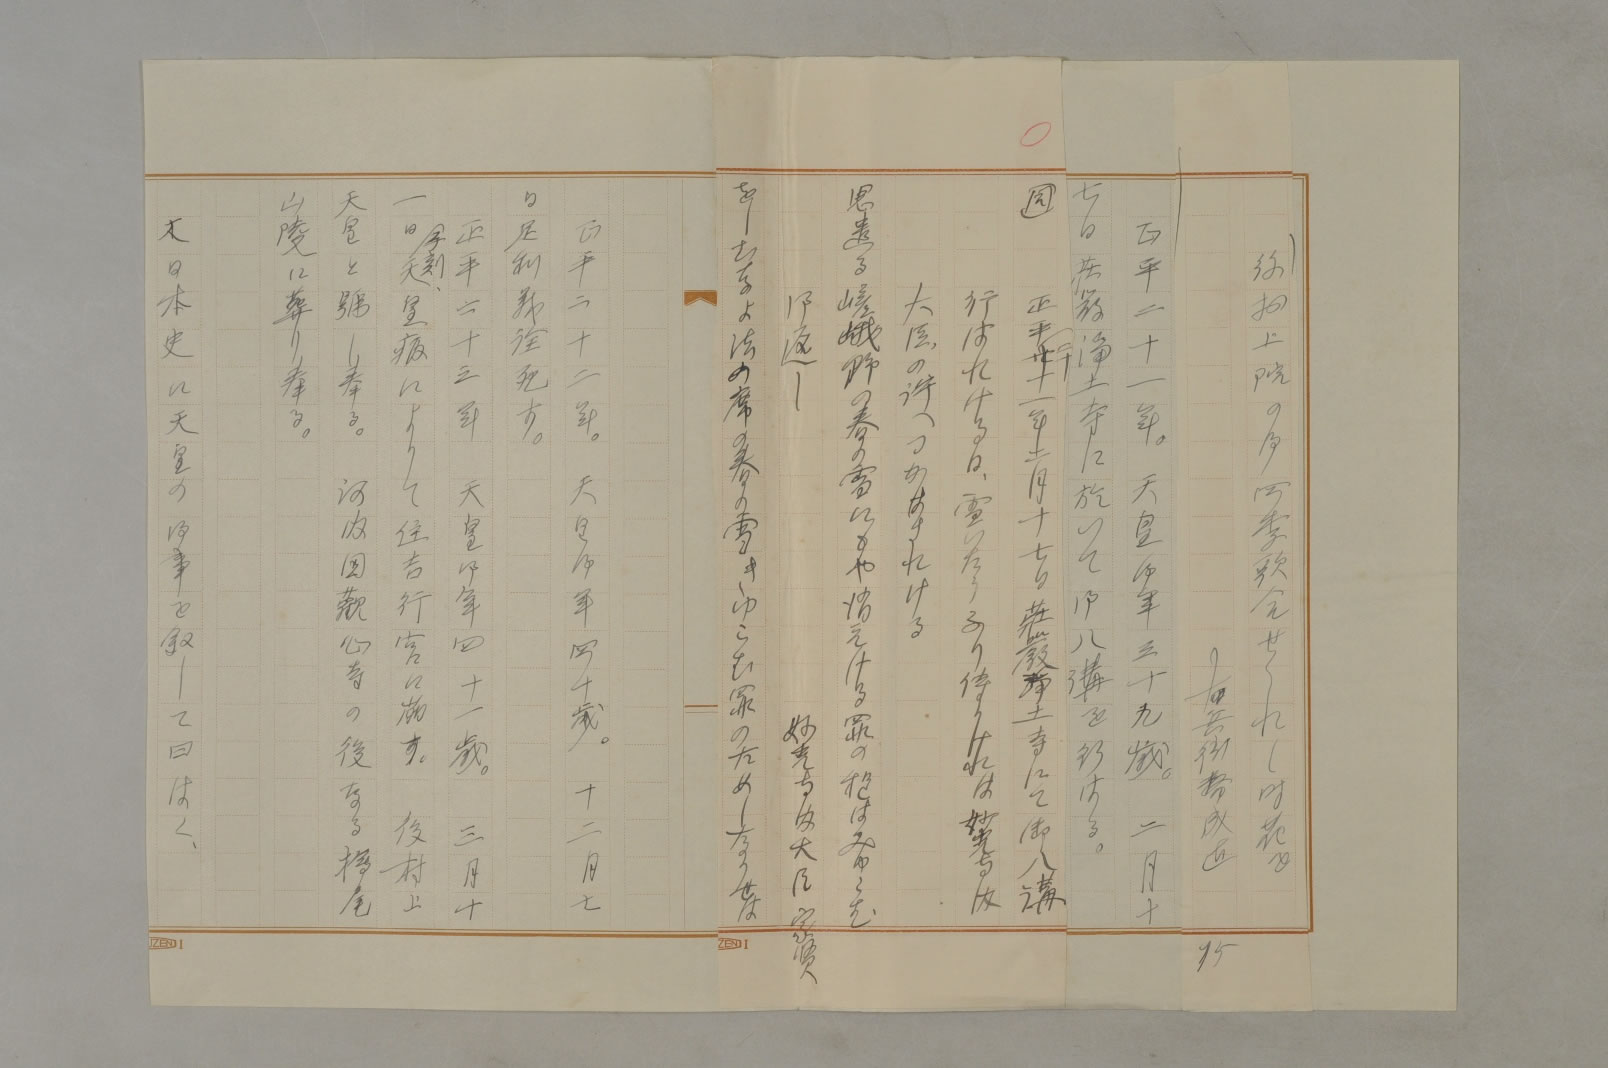 後村上院の御時四季歌合せられし時花を
右兵衛督成直
正平二十一年。天皇御年三十九歳。二月十
七日荘厳浄土寺に於いて御八講を行はる。
圏
正平廿一年二月十七日荘厳浄土寺にて御八講
行はれける日、雪いたうふり侍りけれは妙光寺内
大臣の許へつかはされける
思遣る嵯峨野の春の雪にもや消えける罪の程はみゆらむ
御返し
妙光寺内大臣 家賢
をしむなよ法の席の春の雪きゆらむ罪のためしなりせは
正平二十二年。天皇御年四十歳。十二月七
日足利義詮死す。
正平二十三年 天皇御年四十一歳。三月十
一日子刻、天皇病によりて住吉行宮に崩ず。後村上
天皇と号し奉る。河内国観心寺の後なる檜尾
山陵に葬り奉る。
大日本史に天皇の御事を叙して曰はく、
95
IZEN I
ZEN I